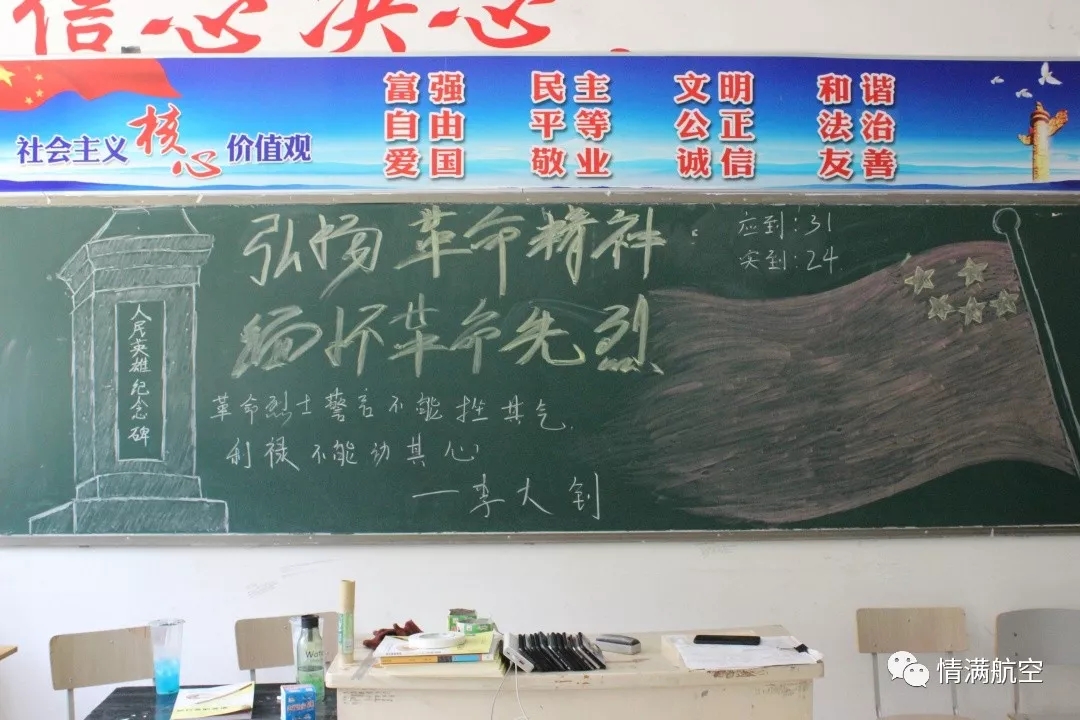 信心决心
社会主义核心价值观
富强 民主 文明 和谐
自由 平等 公正 法治
爱国 敬业 诚信 友善
弘扬革命精神
应到:31
实到:24
缅怀革命先烈
人民英雄纪念碑
革命烈士警言不能挫其气
利禄不能动其心
—李大钊
Wate
情满航空